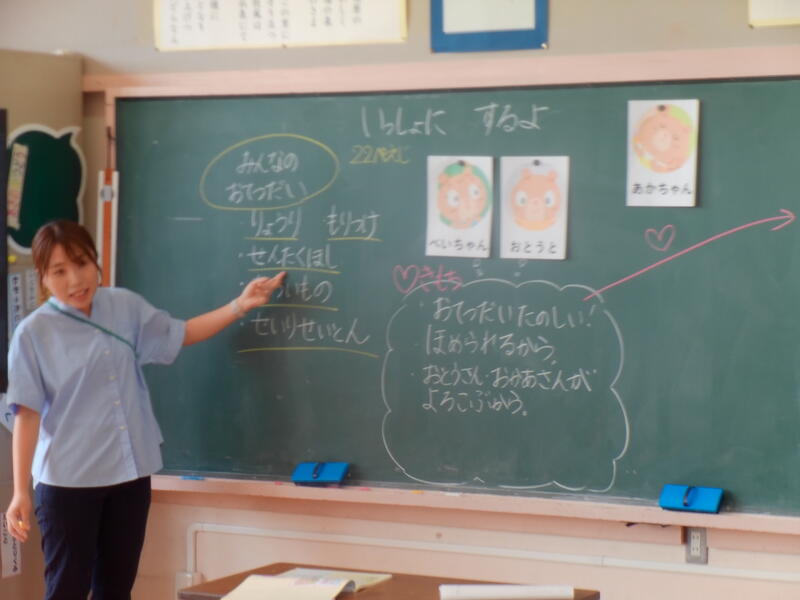 いっしょに するよ
22ページ
みんなの
おてつだい
・りょうり もりつけ
・せんたくほし
いもの
・せいりせいとん
べいちゃん
おとうと
あかちゃん
きもち
・おてつだいたのしい!
ほめられるから。
・おとうさん・おかあさんが
よろこぶから。